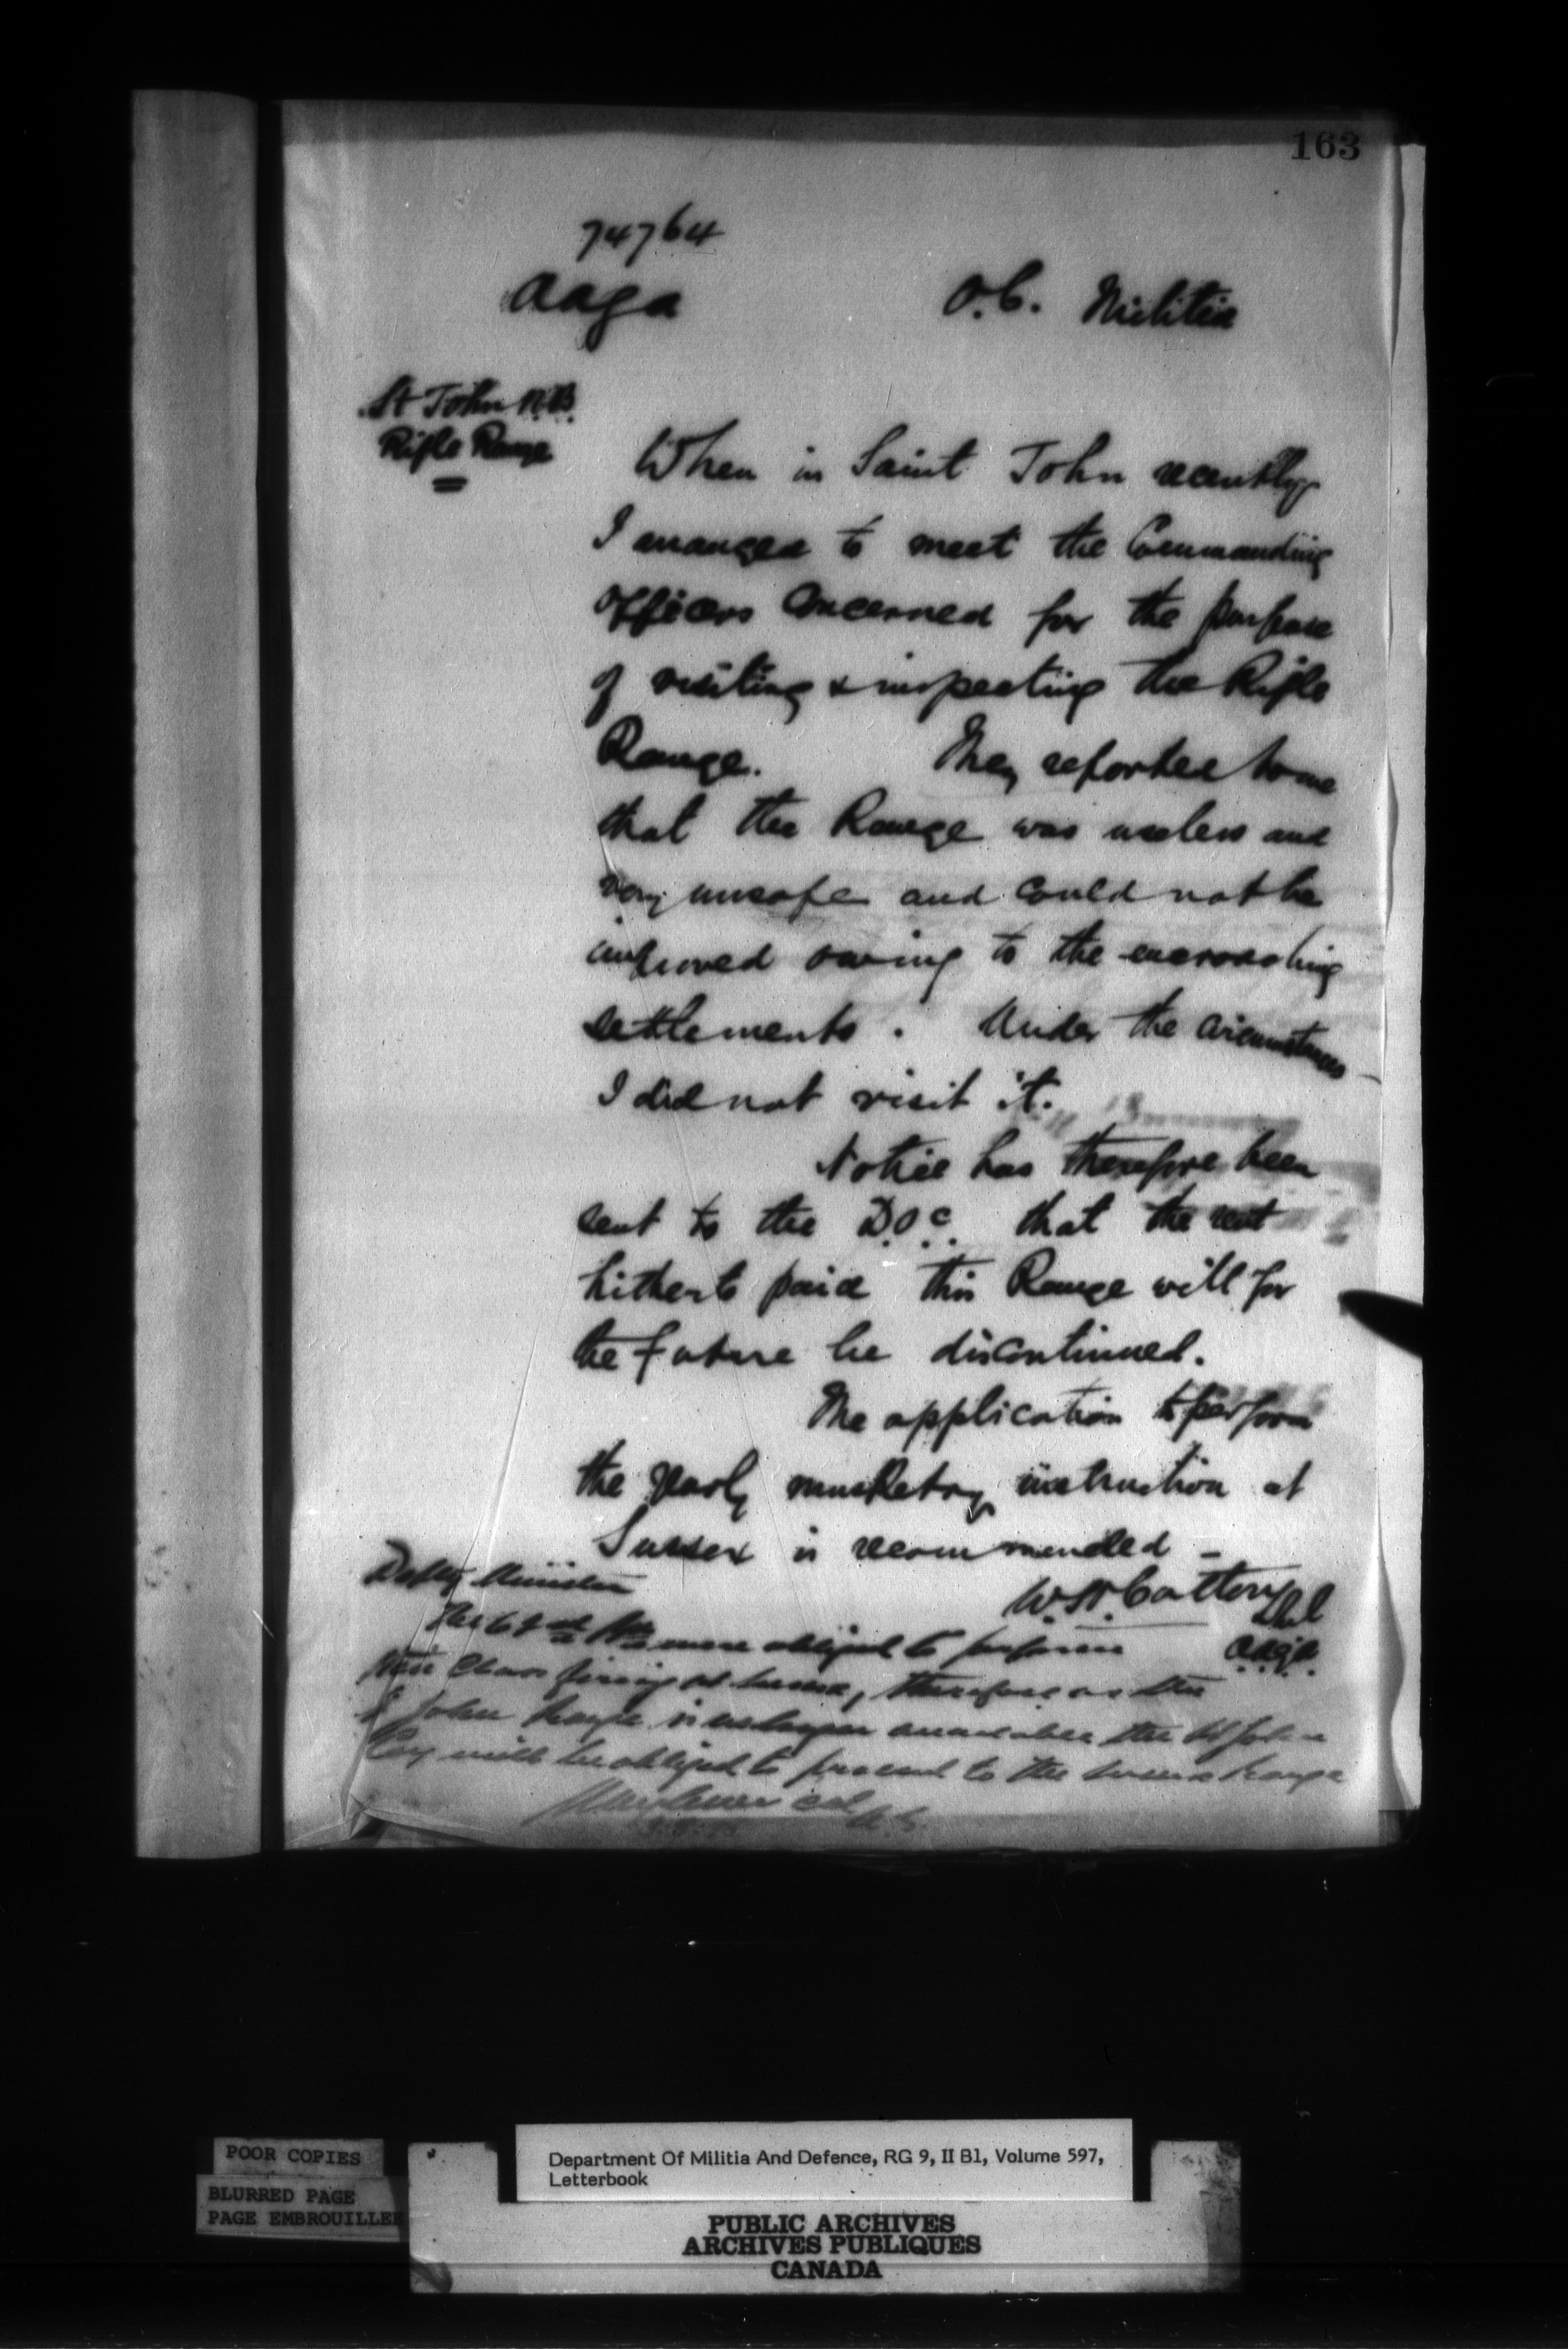 163
74764
aaga
O.C. Militia
St John N.B.
Rifle Range
When in Saint John recently
I arranged to meet the Commanding
Officers concerned for the purpose
of visiting & inspecting the Rifle
Range. They reported to me
that the Range was useless and
very unsafe and could not be
improved owing to the encroaching
settlements. Under the circumstances
I did not visit it.
Notice has therefore been
sent to the D.O.C. that the rent
hitherto paid this Range will for
the future be discontinued.
The application to perform
the yearly musketry instruction at
Sussex is recommended –
W.H. Cotton
aaga.
Minister
The were obliged to perform
their Class firing at Sussex, therefore as the
St John Range is no longer available the St John
will be obliged to proceed to the Sussex Range
POOR COPIES
BLURRED PAGE
PAGE EMBROUILLEE
Department Of Militia And Defence, RG 9, II B1, Volume 597,
Letterbook
PUBLIC ARCHIVES
ARCHIVES PUBLIQUES
CANADA